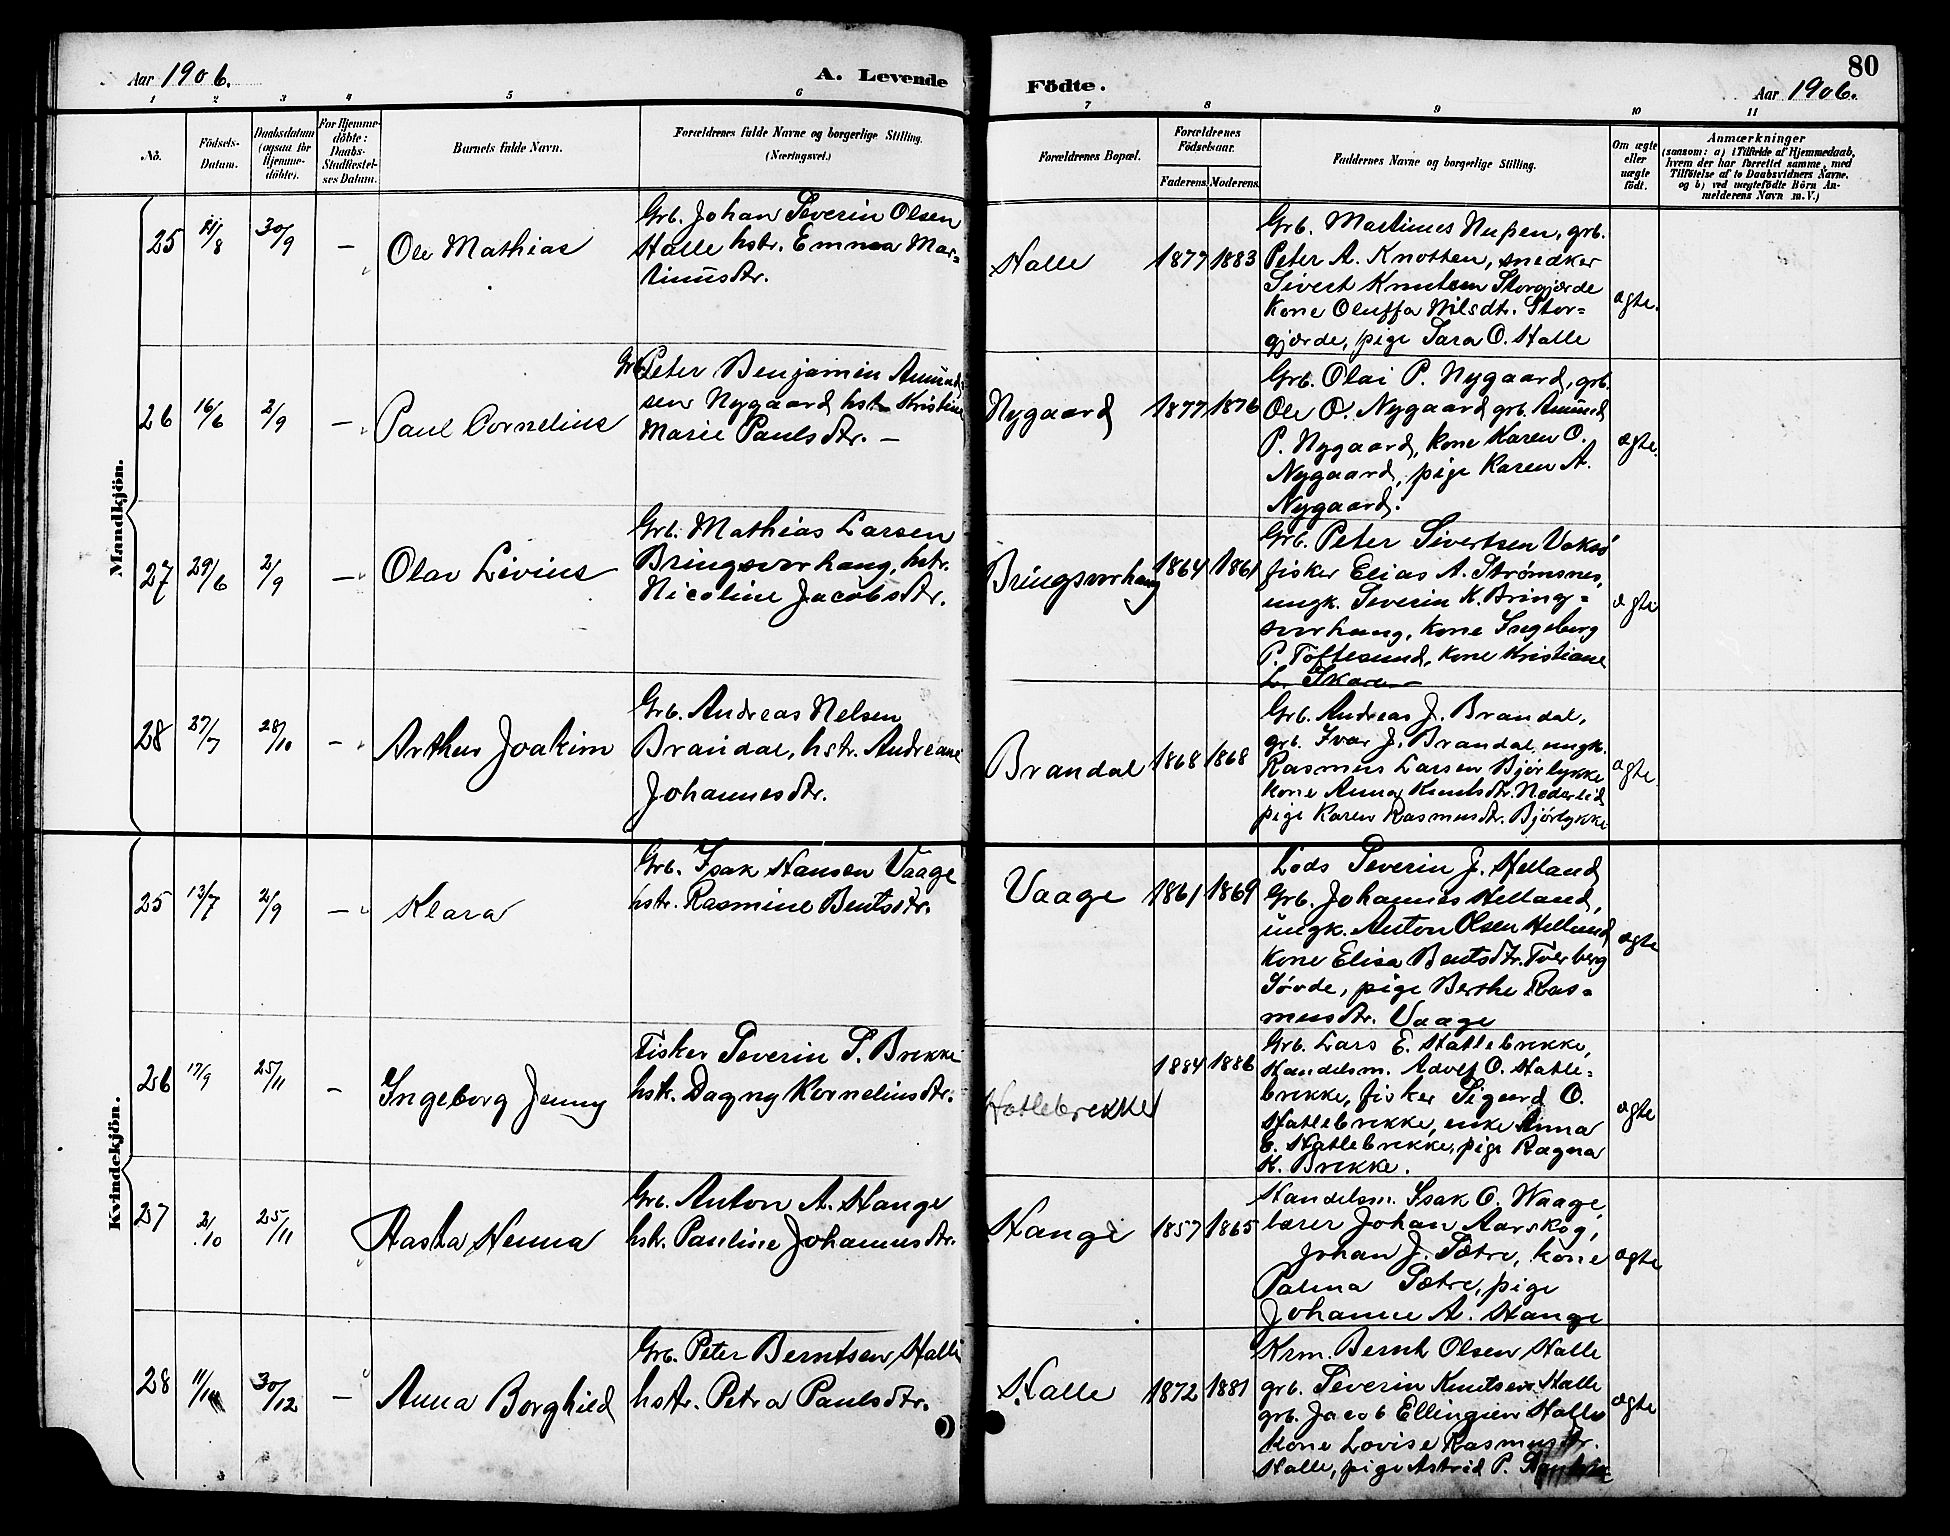 Aar 1906.
A. Levende
1 2 3 4 5 6
No.
Födsels-
Datum.
Daabsdatum
(ogsaa for
Hjemme-
döbte).
For Hjemme-
döbte:
Daabs-
Stadfæstel-
ses Datum.
Barnets fulde Navn.
Forældrenes fulde Navne og borgerlige Stilling.
(Næringsvei.)
Mandkjön.
25 /8 30/9 –
Ole Mathias
Grb. Johan Severin Olsen
Halle hstr. Emma Mar-
tinusdtr.
26 16/6 2/9 –
Paul Cornelius
Grb. Peter Benjamin Amund-
sen Nygaard hstr. Kristine
Marie Paulsdtr. –
27 29/6 2/9 –
Olav Livius
Grb. Mathias Larsen
Bringsvorhaug, hstr.
Nicoline Jacobsdtr.
28 27/7 28/10 –
Arthur Joakim
Grb. Andreas Nelsen
Brandal, hstr. Andreane
Johannesdtr.
Kvindekjön.
25 13/7 2/9 –
Klara
Grb. Isak Hansen Vaage
hstr. Rasmine Bentsdtr.
26 17/9 25/11 –
Ingeborg Jenny
Fisker Severin S. Brekke
hstr. Dagny Korneliusdtr.
27 2/10 25/11
Aasta Henna
Grb. Anton A. Hange
hstr. Pauline Johannesdtr.
28 11/ 30/12 –
Anna Borghild
Grb. Peter Berntsen Halle
hstr. Petra Paulsdtr.
Födte.
80
Aar 1906.
7 8 9 10 11
Forældrenes Bopæl.
Forældrenes
Födselsaar.
Faderens. Moderens.
Faddernes Navne og borgerlige Stilling.
Om ægte
eller
uægte
födt.
Anmærkninger
(saasom: a) i Tilfælde af Hjemmedaab,
hvem der har forrettet samme, med
Tilföielse af to Daabsvidners Navne,
og b) ved uægtefödte Börn An-
melderens Navn m. V.)
Halle 1877 1883
Grb. Martinus Nupen, grb.
Peter A. Knotten, snedker
Sivert Knutsen Storgjærde
kone Oluffa Nilsdtr. Stor-
gjærde, pige Sara O. Halle
ægte.
Nygaard 1877 1876
Grb. Olai P. Nygaard, grb.
Ole O. Nygaard grb. Amund
P. Nygaard, kone Karen O.
Nygaard, pige Karen A.
Nygaard.
ægte.
Bringsvorhaug 1864 1861
Grb. Peter Sivertsen Voksö
fisker Elias A. Strømsnes,
ungk. Severin K. Bring-
svorhaug, kone Ingeborg
P. Toftesund, kone Kristiane
L. Skare
ægte
Brandal 1868 1868
Grb. Andreas J. Brandal,
grb. Ivar J. Brandal, ungk.
Rasmus Larsen Bjørlykke
kone Anna Knutsdtr. Nøderlid
pige Karen Rasmusdtr. Bjørlykke
ægte.
Vaage 1861 1869
Lods Severin J. Helland
Grb. Johannes Helland,
ungk. Anton Olsen Helland
kone Elisa Bentsdtr. Tverberg
Søvde, pige Berthe Ras-
musdtr. Vaage
ægte
Hatlebrekke 1884 1886
Grb. Lars E. Hatlebrekke,
Handelsm. Adolf O. Hatle-
brekke, fisker Sigurd O.
Hatlebrekke, enke Anna
E. Hatlebrekke, pige Ragna
K. Brekke.
ægte
Hange 1857 1865
Handelsm. Isak O. Waage,
lærer Johan Aarskog,
Johan J. Sætre, kone
Palma Sætre, pige
Johanne A. Hange
ægte
Halle 1872 1881
Krm. Bernt Olsen Halle
grb. Severin Knutsen Halle
grb. Jacob Ellingsen Halle
kone Lovise Rasmusdtr.
Halle, pige Astrid P.
ægte